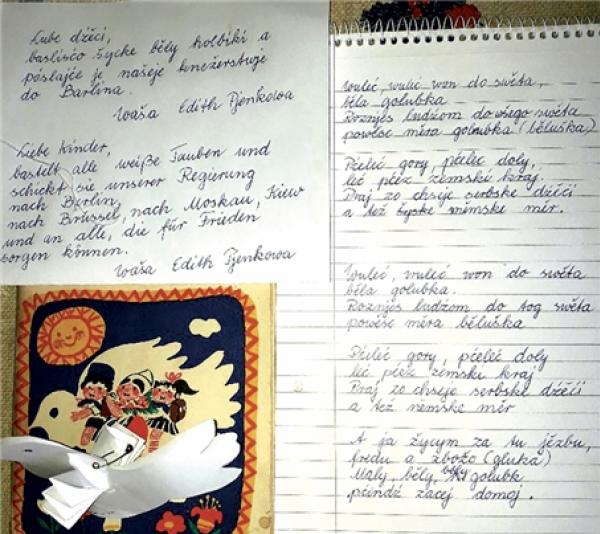 Lube dźěći,
basliśćo šycke běły holbiki a
pósłajće je našeje knežerstwje
do Barlina.
Waša Edith Pjenkowa
Liebe Kinder,
bastelt alle weiße Tauben und
schickt sie unserer Regierung
nach Berlin,
nach Brüssel, nach Moskau, Kiew
und an alle, die für Frieden
sorgen können.
Waša Edith Pjenkowa
Wuleć, wuleć won do swěta,
běła golubka
Roznjes ludźom do wšego swěta
powěsć měra golubka (běluška)
Pśeleć gory, pśeleć doly,
leć pśez zemski kraj.
Praj zo chseje serbske dźěći
a tež nimske měr.
Wuleć, wuleć won do swěta
běła golubka.
Roznjes ludźom do tog swěta
powěsć měra běluška
Pśeleć gory, pśeleć doly
leć pśez zemski kraj
Praj zo chseje serbske dźěći
a tež nemske měr
A ja žycym za tu jězbu,
fredu a zbožo (gluka)
Maly běly, běly golubk
pśindź zacej domoj.